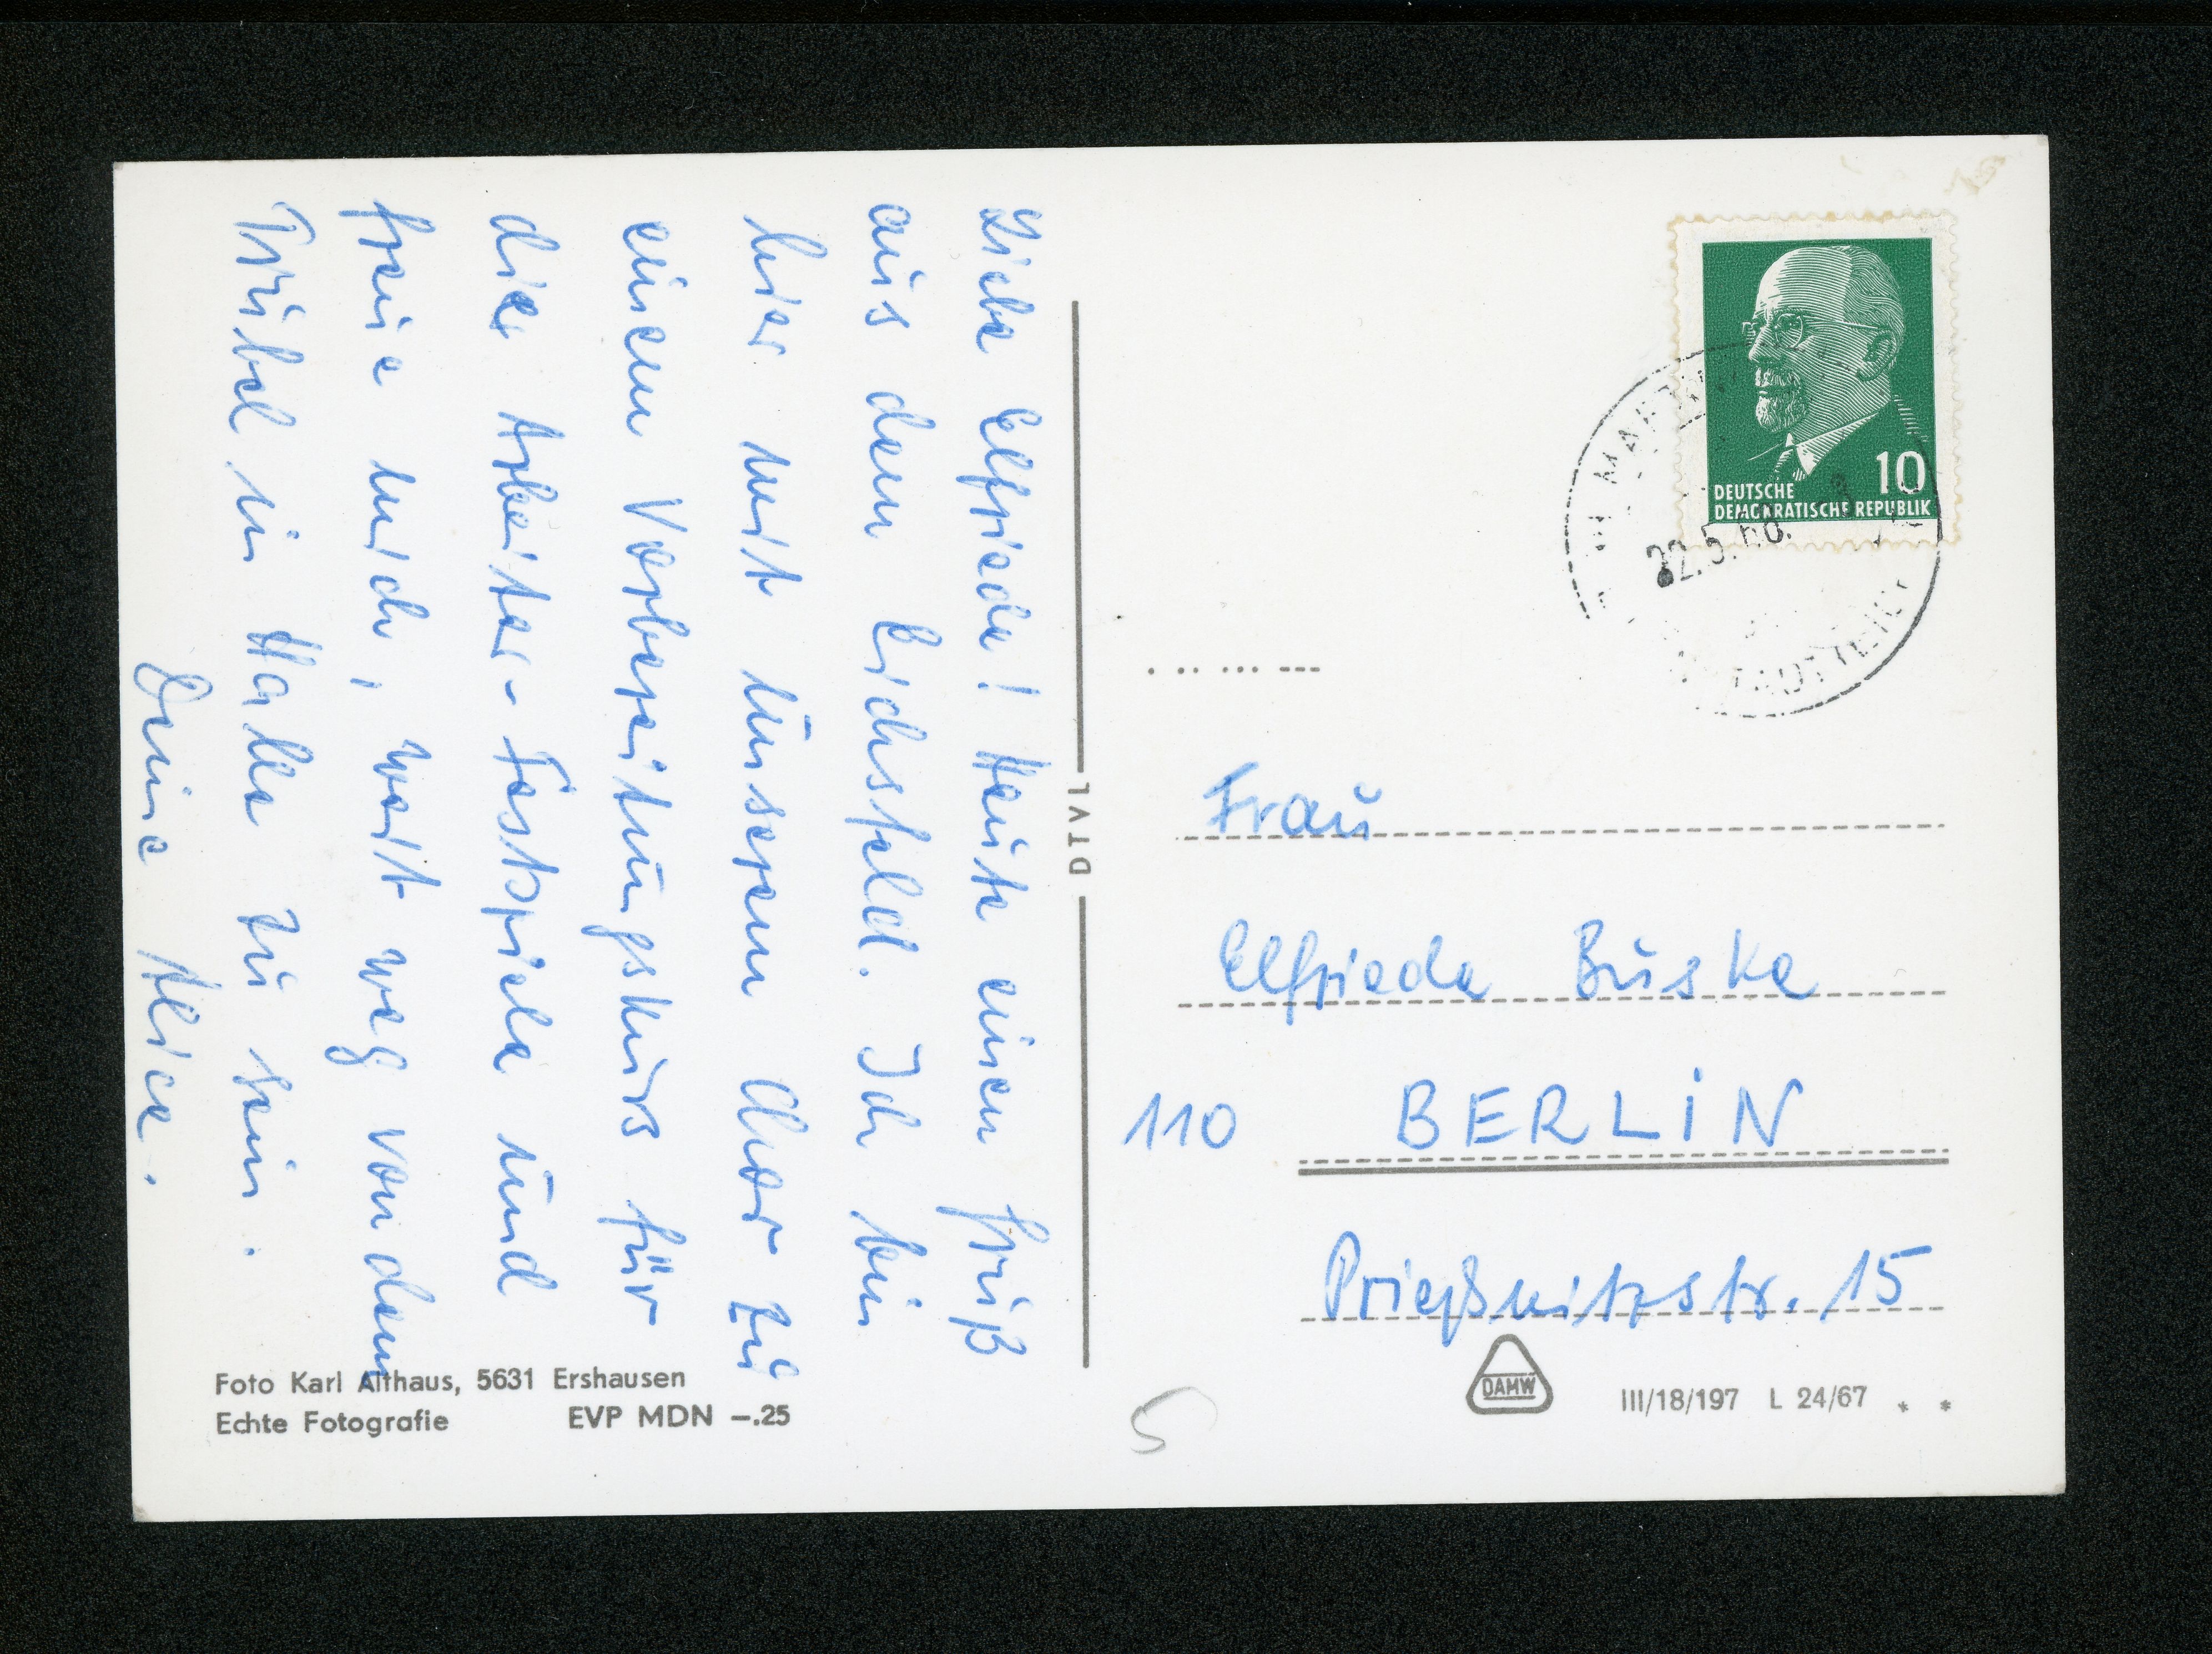 Liebe Elfriede! Heute einen Gruß
aus dem Eichsfeld. Ich bin
hier mit unserem Chor zu
einem Vorbereitungskurs für
die Arbeiter-Festspiele und
freue mich, weit weg von dem
Trubel in Halle zu sein.
Deine Alice.
DTVL
Foto Karl Althaus, 5631 Ershausen
Echte Fotografie EVP MDN –.25
10
DEUTSCHE
DEMOKRATISCHE REPUBLIK
22.5.68.
Frau
Elfriede Buske
110 BERLIN
Prießnitzstr. 15
DAMW
III/18/197 L 24/67 * *
5